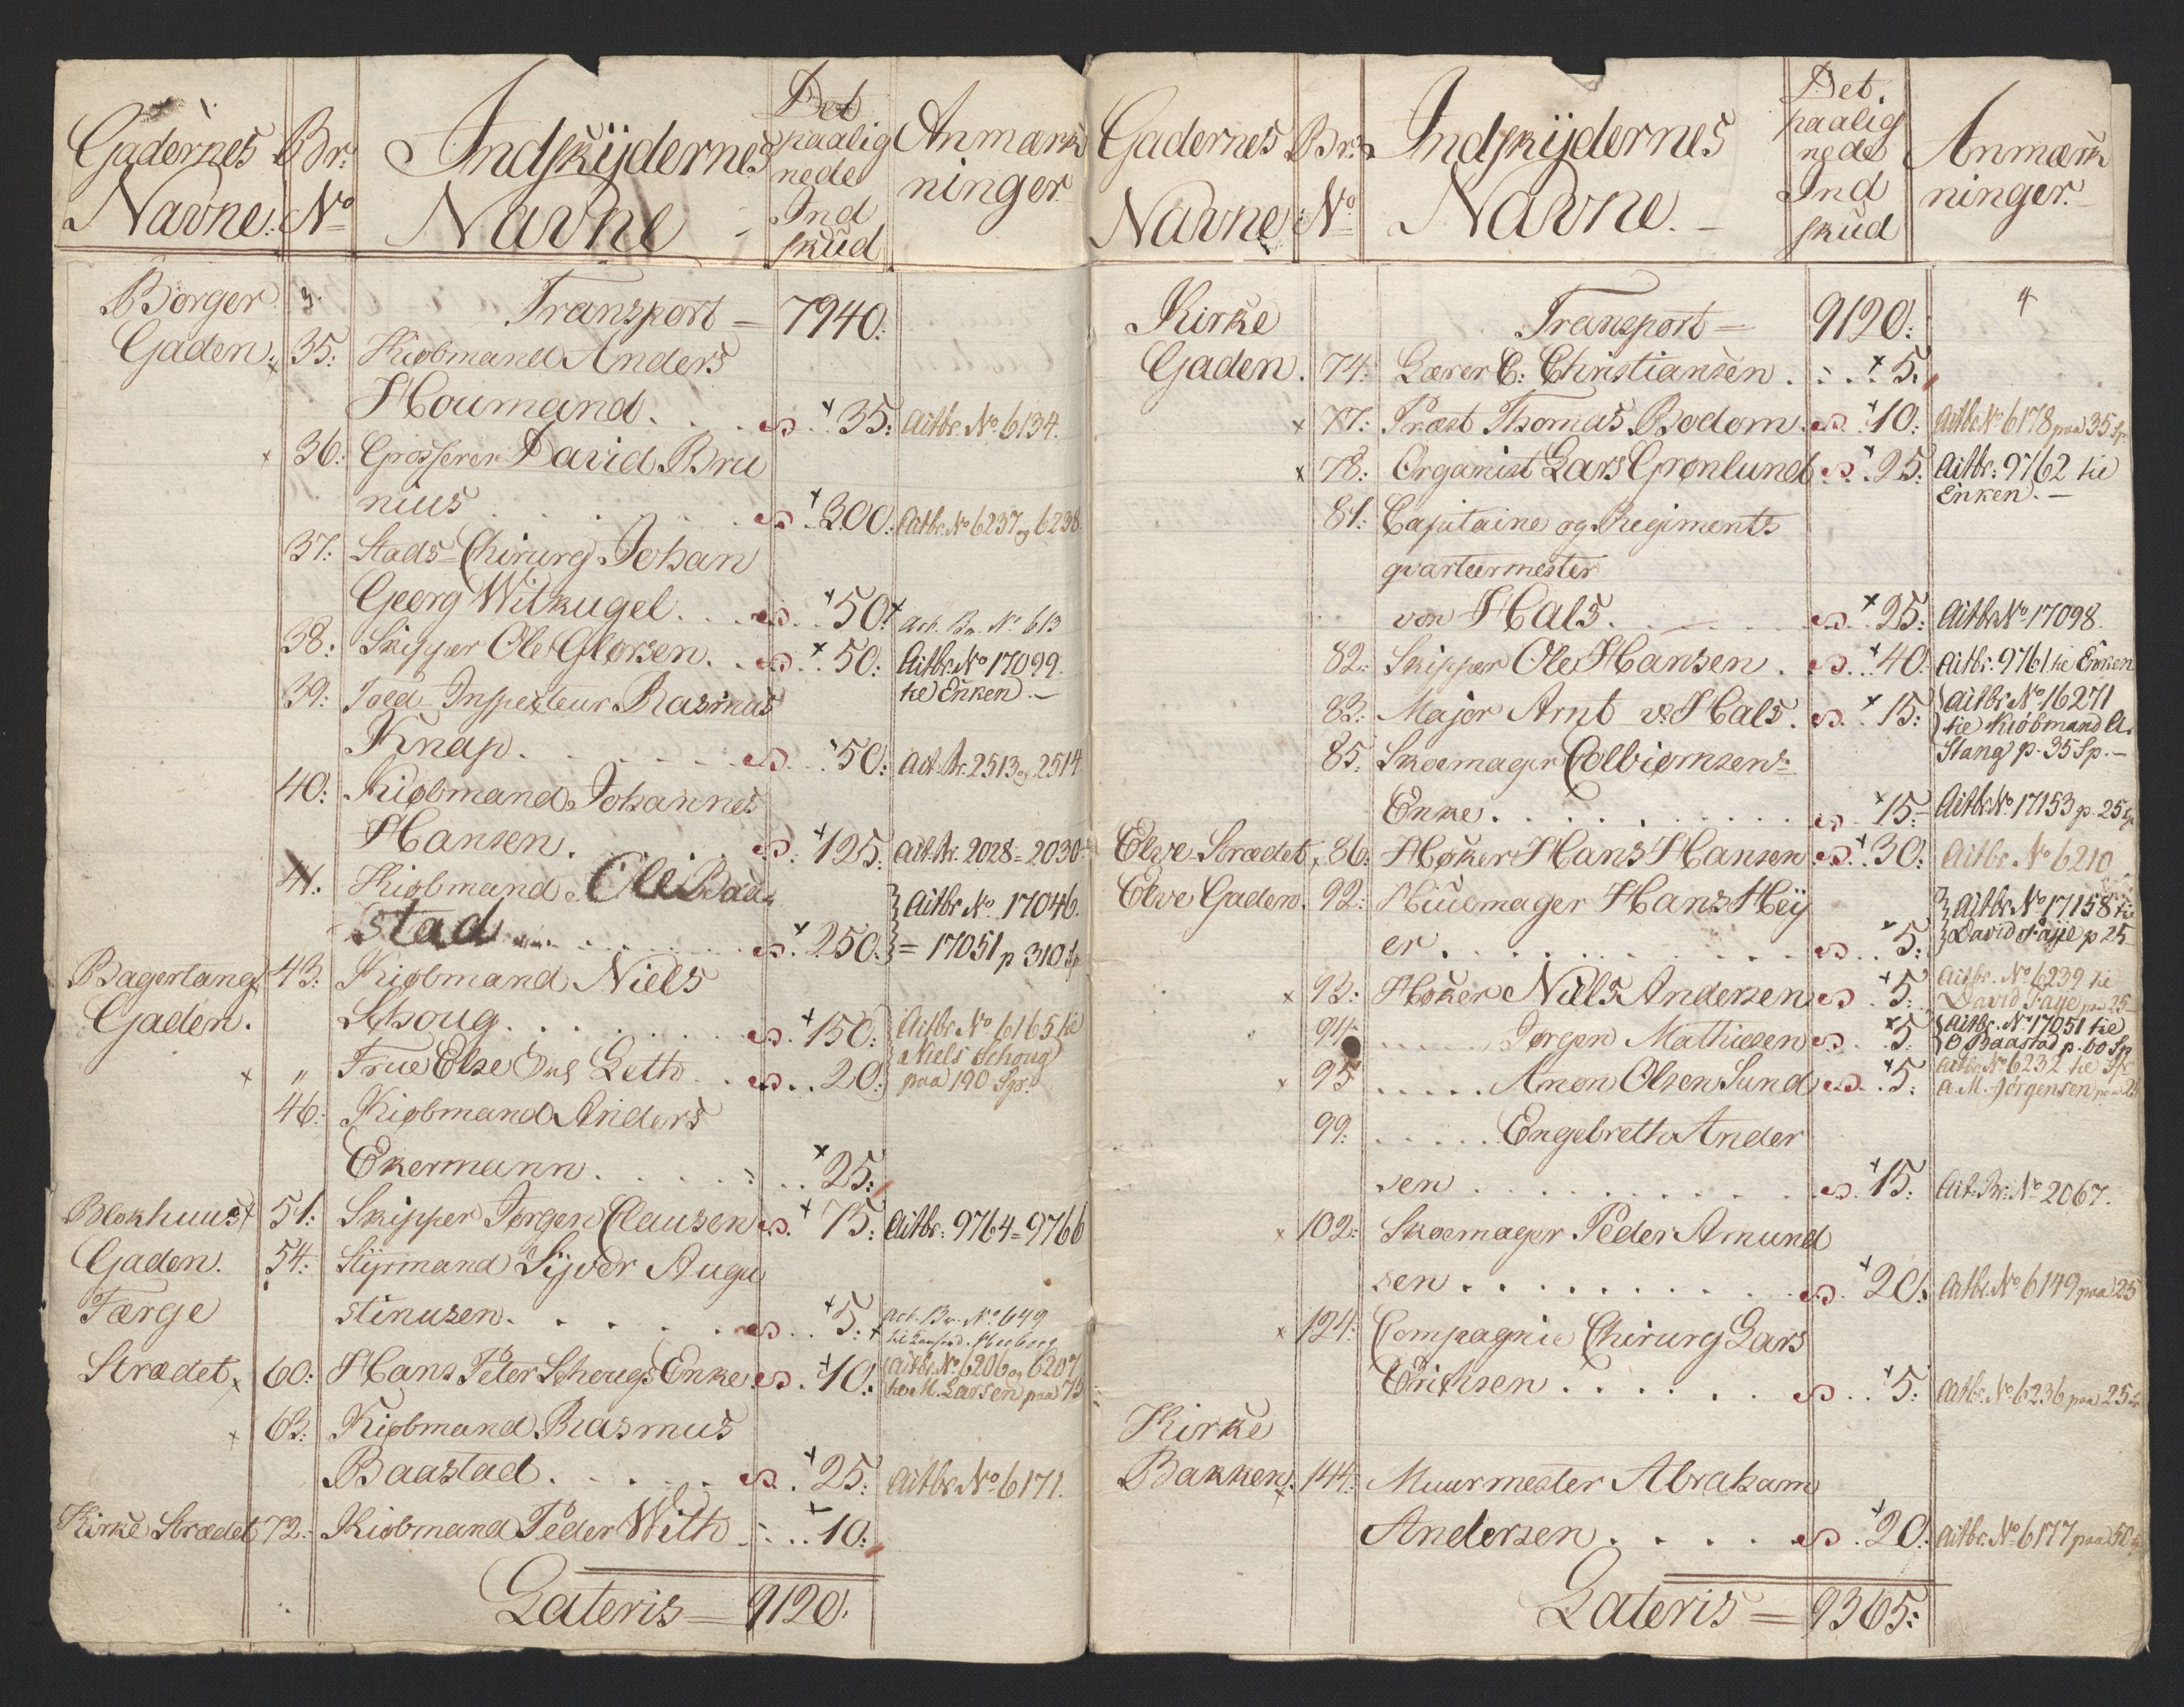 Gadernes Navne:
Br: No
Indskÿdernes Navne
Det paalig nede Ind skud
Anmærk ninger.
Borger 3. Transport = 7940:
Gaden: 35: Kiøbmand Anders
Houmand. . . . 35: Aitbr. No 6134.
× 36: Grosserer David Bru
nius . . . . 300: Aitbr. No 6237 og 6238.
37: Stads-Chirurg Johan
Georg Witkugel. . . . 50: Act. Br. No 613
38: Skipper Ole Glørsen. . . 50: Aitbr. No 17099.
til Enken. —
39: Told-Inspecteur Rasmus
Knap. . . . 50: Act. Br. 2513 og 2514.
40: Kiøbmand Johannes
Hansen. . . . 125: Act. Br. 2028 = 2030.
41: Kiøbmand Ole Baa-
stad . . . . 250: Aitbr No. 17046. = 17051 p 310 Sp
Bagerlang 43: Kiøbmand Niels
Gaden. Schoug. . . . 150: Aitbr. No 6165 til
× " Frue Else Leth . . . 20: Niels Schoug paa 190 Sp.
46: Kiøbmand Anders
Ekermann. . . . 25:
Blokhuus × 51: Skipper Jørgen Clausen 75: Aitbr: 9764 = 9766
Gaden. 54: Stÿrmand Sÿver Augu
Færge stinusen. . . . 5: Act. Br. No 649
Strædet × 60: Hans Peter Schougs Enke . 10: Aitbr. No 6206 og 6207
M. Larsen paa 75
× 63: Kiøbmand Rasmus
Baastad. . . . 25: Aitbr No 6171.
Kirke Strædet 72: Kiøbmand Peder With . . . 10:
Lateris = 9120.
Gadernes Navne:
Br: No
Indskÿdernes Navne. —
Det paalig nede Ind skud
Anmærk ninger. —
Kirke Transport = 9120: 4
Gaden. 74: Lærer C: Christiansen . . . 5:
× 77: Præst Thomas Bodom. 10: Aitbr. No 6178 paa 35 Sp.
× 78: Organist Lars Grønlund 25: Aitbr: 9762 til
Enken. —
81: Capitaine og Regiments
qvarteermester
von Hals. . . . 25: Aitbr No 17098.
82: Skipper Ole Hansen . 40: Aitbr. 9761 til Enken
83: Major Arnt v. Hals. 15: Aitbr No 16271
til Kiøbmand A.
Stang p. 35 Sp. —
85: Skoemager Colbiørnsens
Enke. . . . 15: Aitbr No 17153 p. 25 Sp
Elve-Strædet × 86: Høker Hans Hansen 30: Aitbr. No 6210
Elve Gaden. 92: Hiulmager Hans Heÿ
er. . . . 5: Aitbr No 17158 til
David Faÿe p 25
× 93: Høker Niels Andersen 5: Aitbr. No 6239 til
David Faÿe paa 25
94: . . . . Jørgen Mathiesen 5: Aitbr. No 17051 til
O Baastad p. 60 Sp
× 95 . . . . Amon Olsen Sund 5: Aitbr. No 6232 til
A. M. Jørgensen
99: . . . . Engebreth Ander
sen . . . . 15: Act. Br: No 2067.
× 102: Skoemager Peder Amund
sen. . . . 20: Aitbr. No 6149 paa 25
× 124: Compagnie Chirurg Lars
Erichsen. . . . 5: Aitbr. No 6236 paa 25 Sp
Kirke
Bakken. × 144: Muurmester Abraham
Andersen. . . . 20: Aitbr. No 6177 paa 50
Lateris = 9365: